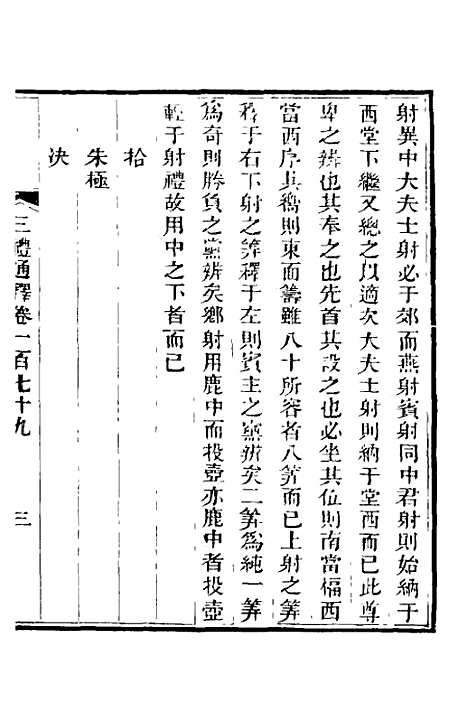 射異中大夫士射必于郊而燕射賓射同中君射則始納于
西堂下繼又總之以適次大夫士射則納于堂西而已此尊
卑之辨也其奉之也先首其設之也必坐其位則南當楅西
當西序其嚮則東面籌雖八十所容者八筭而已上射之筭
釋于右下射之筭釋于左則賓主之黨辨矣二筭爲純一筭
爲奇則勝負之黨辨矣鄉射用鹿中而投壺亦鹿中者投壺
輕于射禮故用中之下者而已
拾
朱極
決
三禮通釋卷一百七十九
三